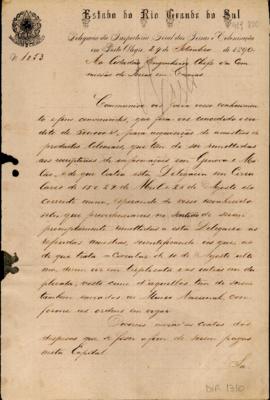 Estado do Rio Grande do Sul
Delegacia da Inspectoria Geral das Terras e Colonisação
em Porto Alegre, 29 de Setembro de 1890
Nº 1053
Ao Cidadão Engenheiro Chefe da Com
missão de Terras em
Communico-vos para vosso conhecimento
e fins convenientes, que foi concedido o cre
dito de para acquisição de amostras de
productos coloniaes, que tem de ser remettidas
aos escriptorios de informações em Genova e
e de que tratou esta Delegacia em Circu
lares de 15 e 29 de Abril e 20 de Agosto do
corrente anno, esperando de vosso
que providenciareis no sentido de serem
promptamente remettidas a esta Delegacia as
referidas amostras, scientificando-vos que, as
de que trata a Circular de 10 de Agosto ulti
mo, devem vir em triplicata e as outras em du
plicata, visto como d'aquellas tem de serem
tambem enviadas ao Museo Nacional, con
forme as ordens em vigor.
Devereis enviar as contas das
despezas que a fizer afim de serem pagas
nesta Capital.
DIR 1310